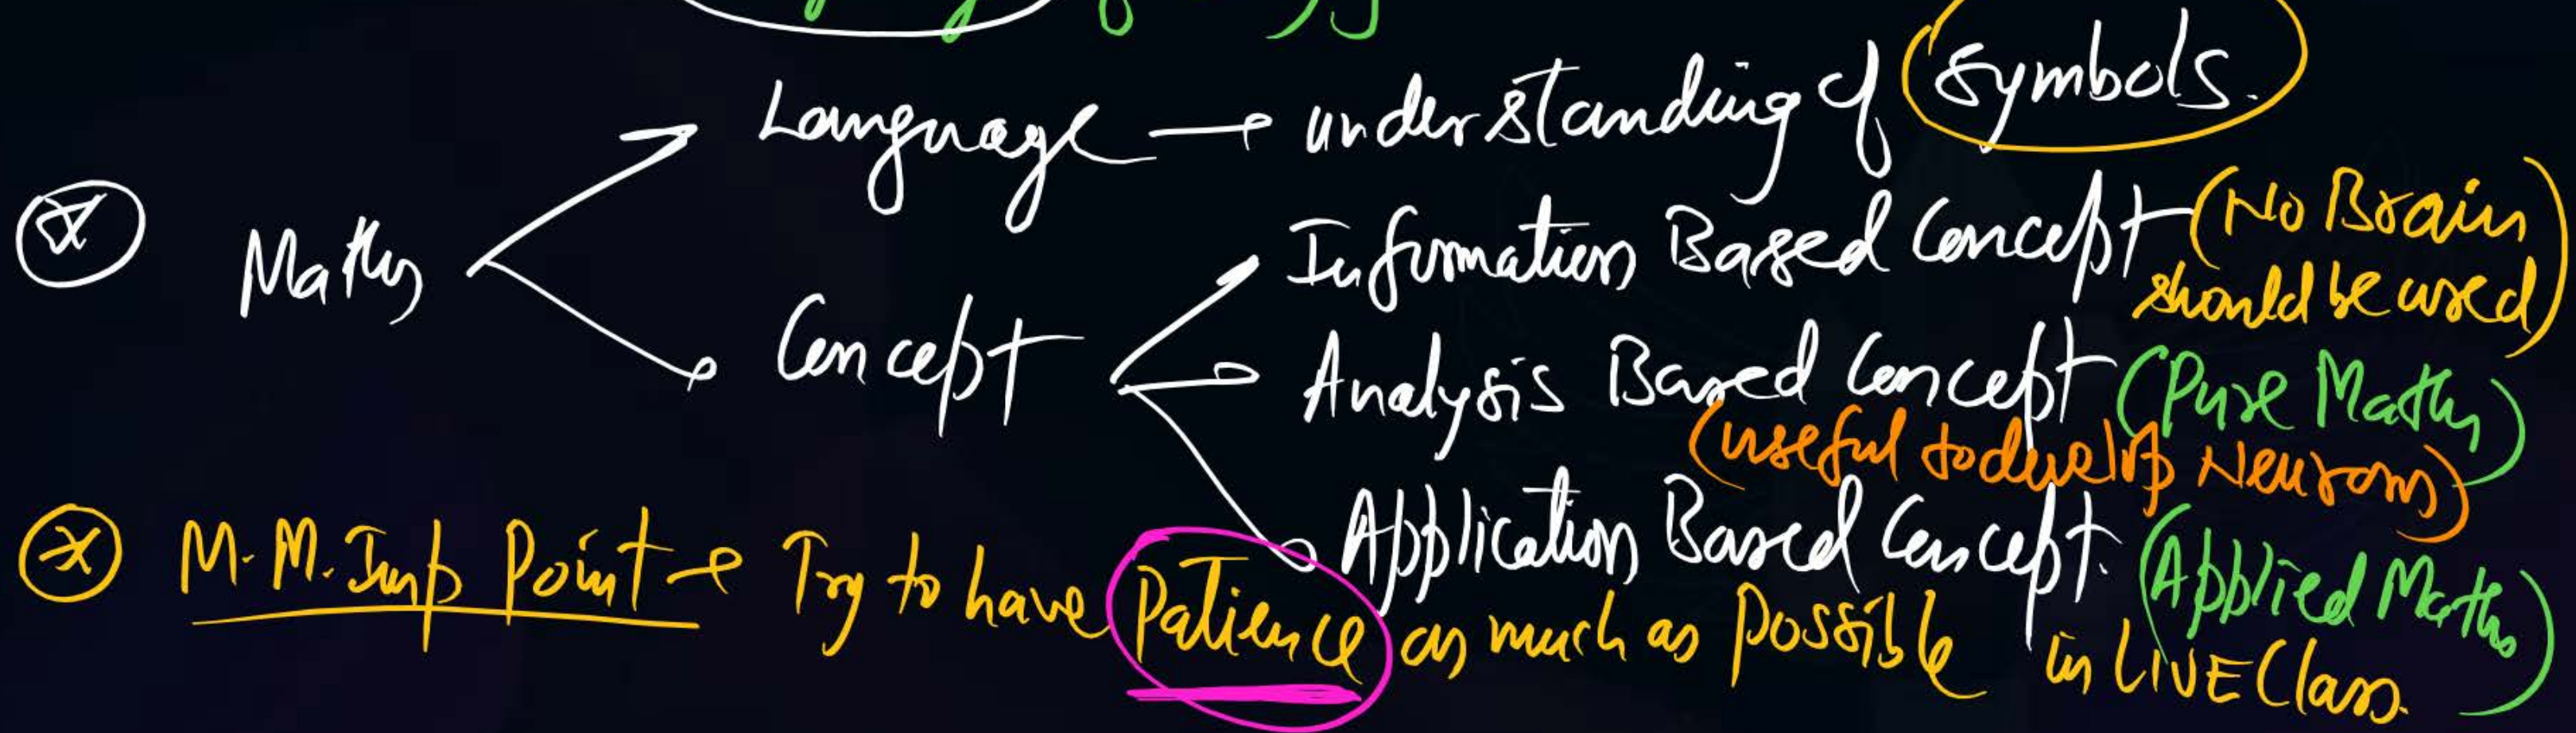 Language → understanding of Symbols.
Maths
Information Based Concept (No Brain should be used)
Concept
Analysis Based Concept (Pure Maths)
(useful to develop Neurons)
Application Based Concept. (Applied Maths)
M.M.Imp Point → Try to have Patience as much as possible in LIVE Class.